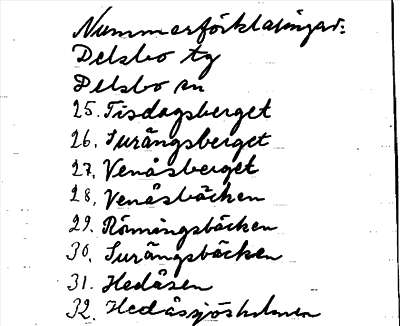 Nummerförklaringar:
Delsbo tg
Delsbo sn
25. Tisdagsberget
26. Surängsberget
27. Venåsberget
28, Venåsbäcken
29. Römängsbäcken
30. Surängsbäcken
31. Hedåsen
32. Hedåssjösholmen